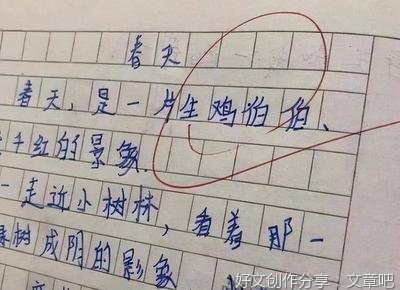 春天
春天,是一片生鸡伯伯、
千红的景象.
一走近小树林,看着那一
树成阴的影象
好文创作分享·文章吧